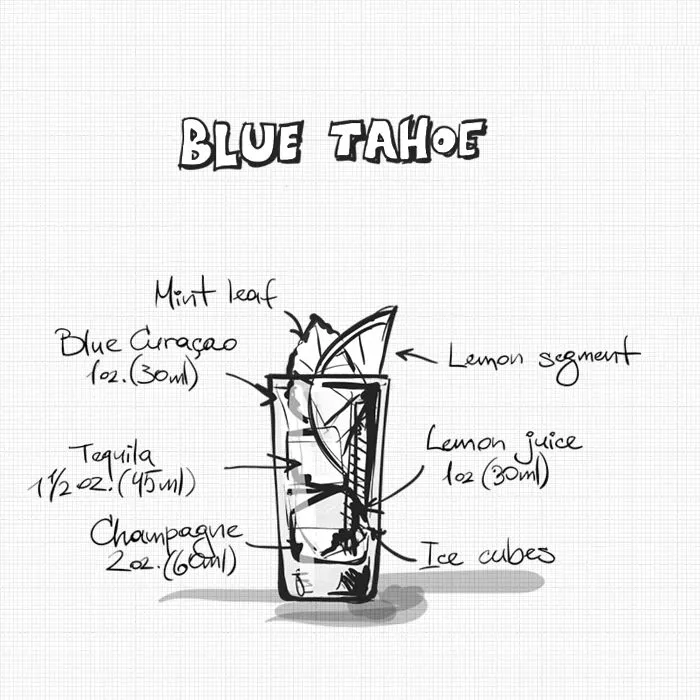 BLUE TAHOE
Mint leaf
Blue Curaçao
1oz. (30ml)
Lemon segment
Tequila
1 1/2 oz. (45ml)
Lemon juice
1oz (30ml)
Champagne
2oz. (60ml)
Ice cubes